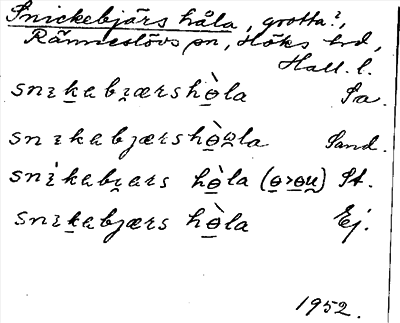 Snickebjärs håla, grotta?,
Ränneslövs sn, Höks hd,
Hall. l.
snɪkabjærshɵ̀la Sa.
snɪkabjærshɵ̀ʊla Sand.
snɪ̀kabjars hɵ̀la (ɵ>ɵu) St.
snɪkabjærs hɵ̀la Ej.
1952.